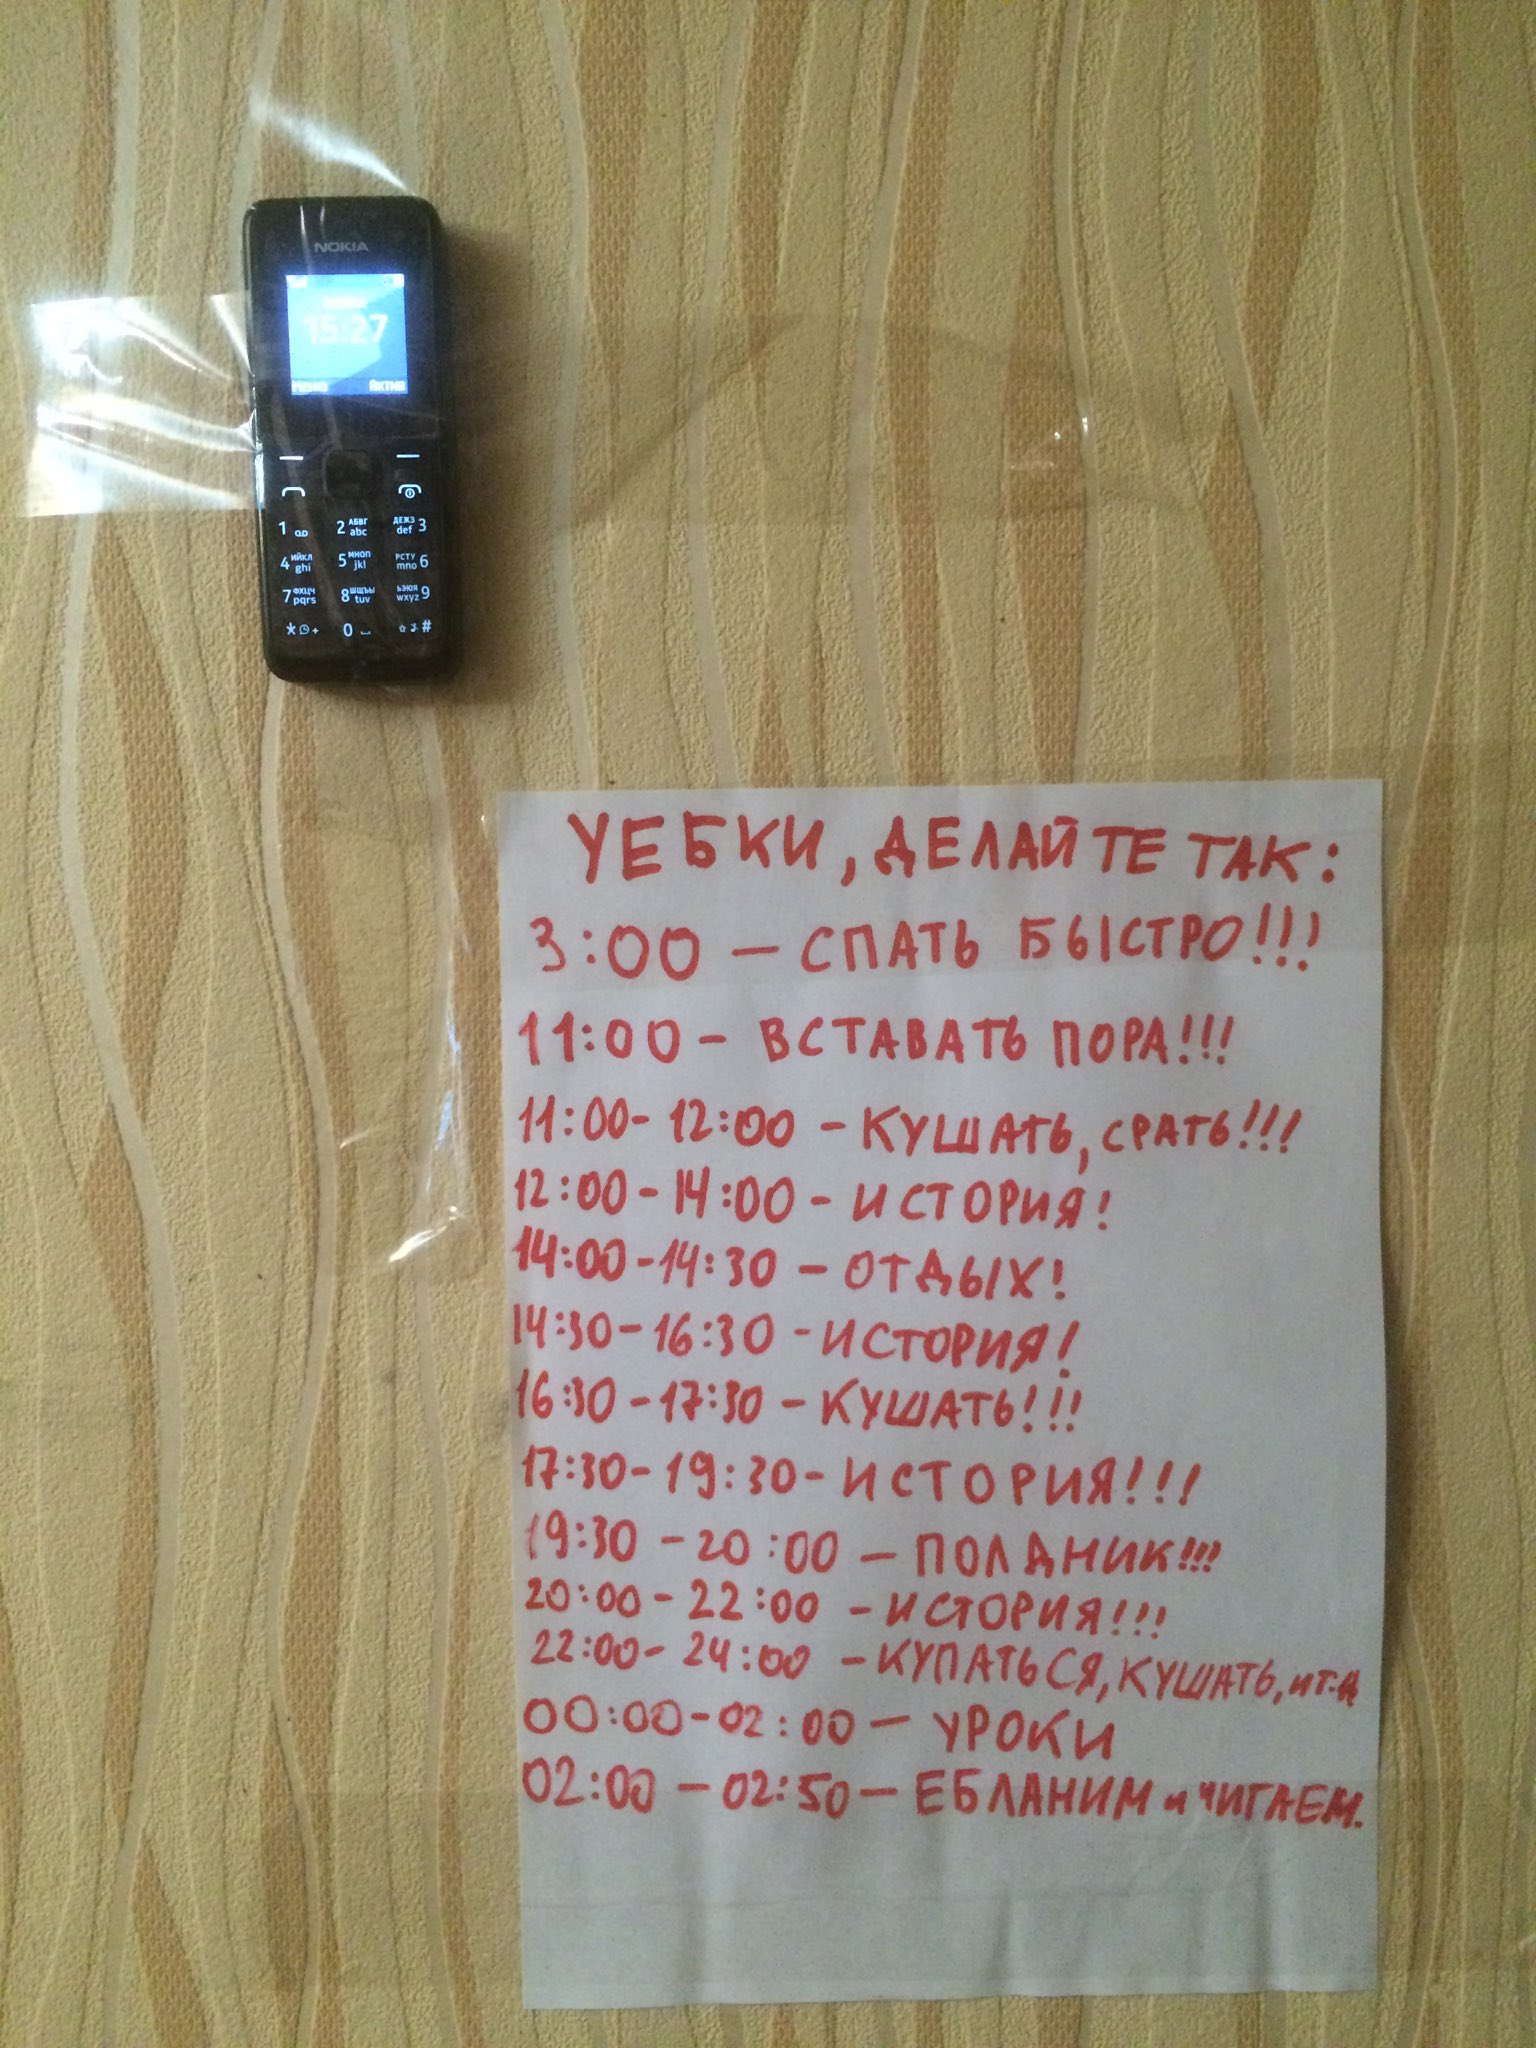 NOKIA
15:27
Меню Актив
1
2 АБВГ abc
ДЕЖЗ def 3
4 ИЙКЛ ghi
5 МНОП jkl
РСТУ mno 6
7 ФХЦЧ pqrs
8 ШЩЪЫ tuv
ЬЭЮЯ wxyz 9
* +
0
#
УЕБКИ, ДЕЛАЙТЕ ТАК:
3:00 — СПАТЬ БЫСТРО!!!
11:00 - ВСТАВАТЬ ПОРА!!!
11:00 - 12:00 - КУШАТЬ, СРАТЬ!!!
12:00 - 14:00 - ИСТОРИЯ!
14:00 - 14:30 - ОТДЫХ!
14:30 - 16:30 - ИСТОРИЯ!
16:30 - 17:30 - КУШАТЬ!!!
17:30 - 19:30 - ИСТОРИЯ!!!
19:30 - 20:00 - ПОЛДНИК!!!
20:00 - 22:00 - ИСТОРИЯ!!!
22:00 - 24:00 - КУПАТЬСЯ, КУШАТЬ, и т.д
00:00 - 02:00 - УРОКИ
02:00 - 02:50 - ЕБЛАНИМ и ЧИТАЕМ.